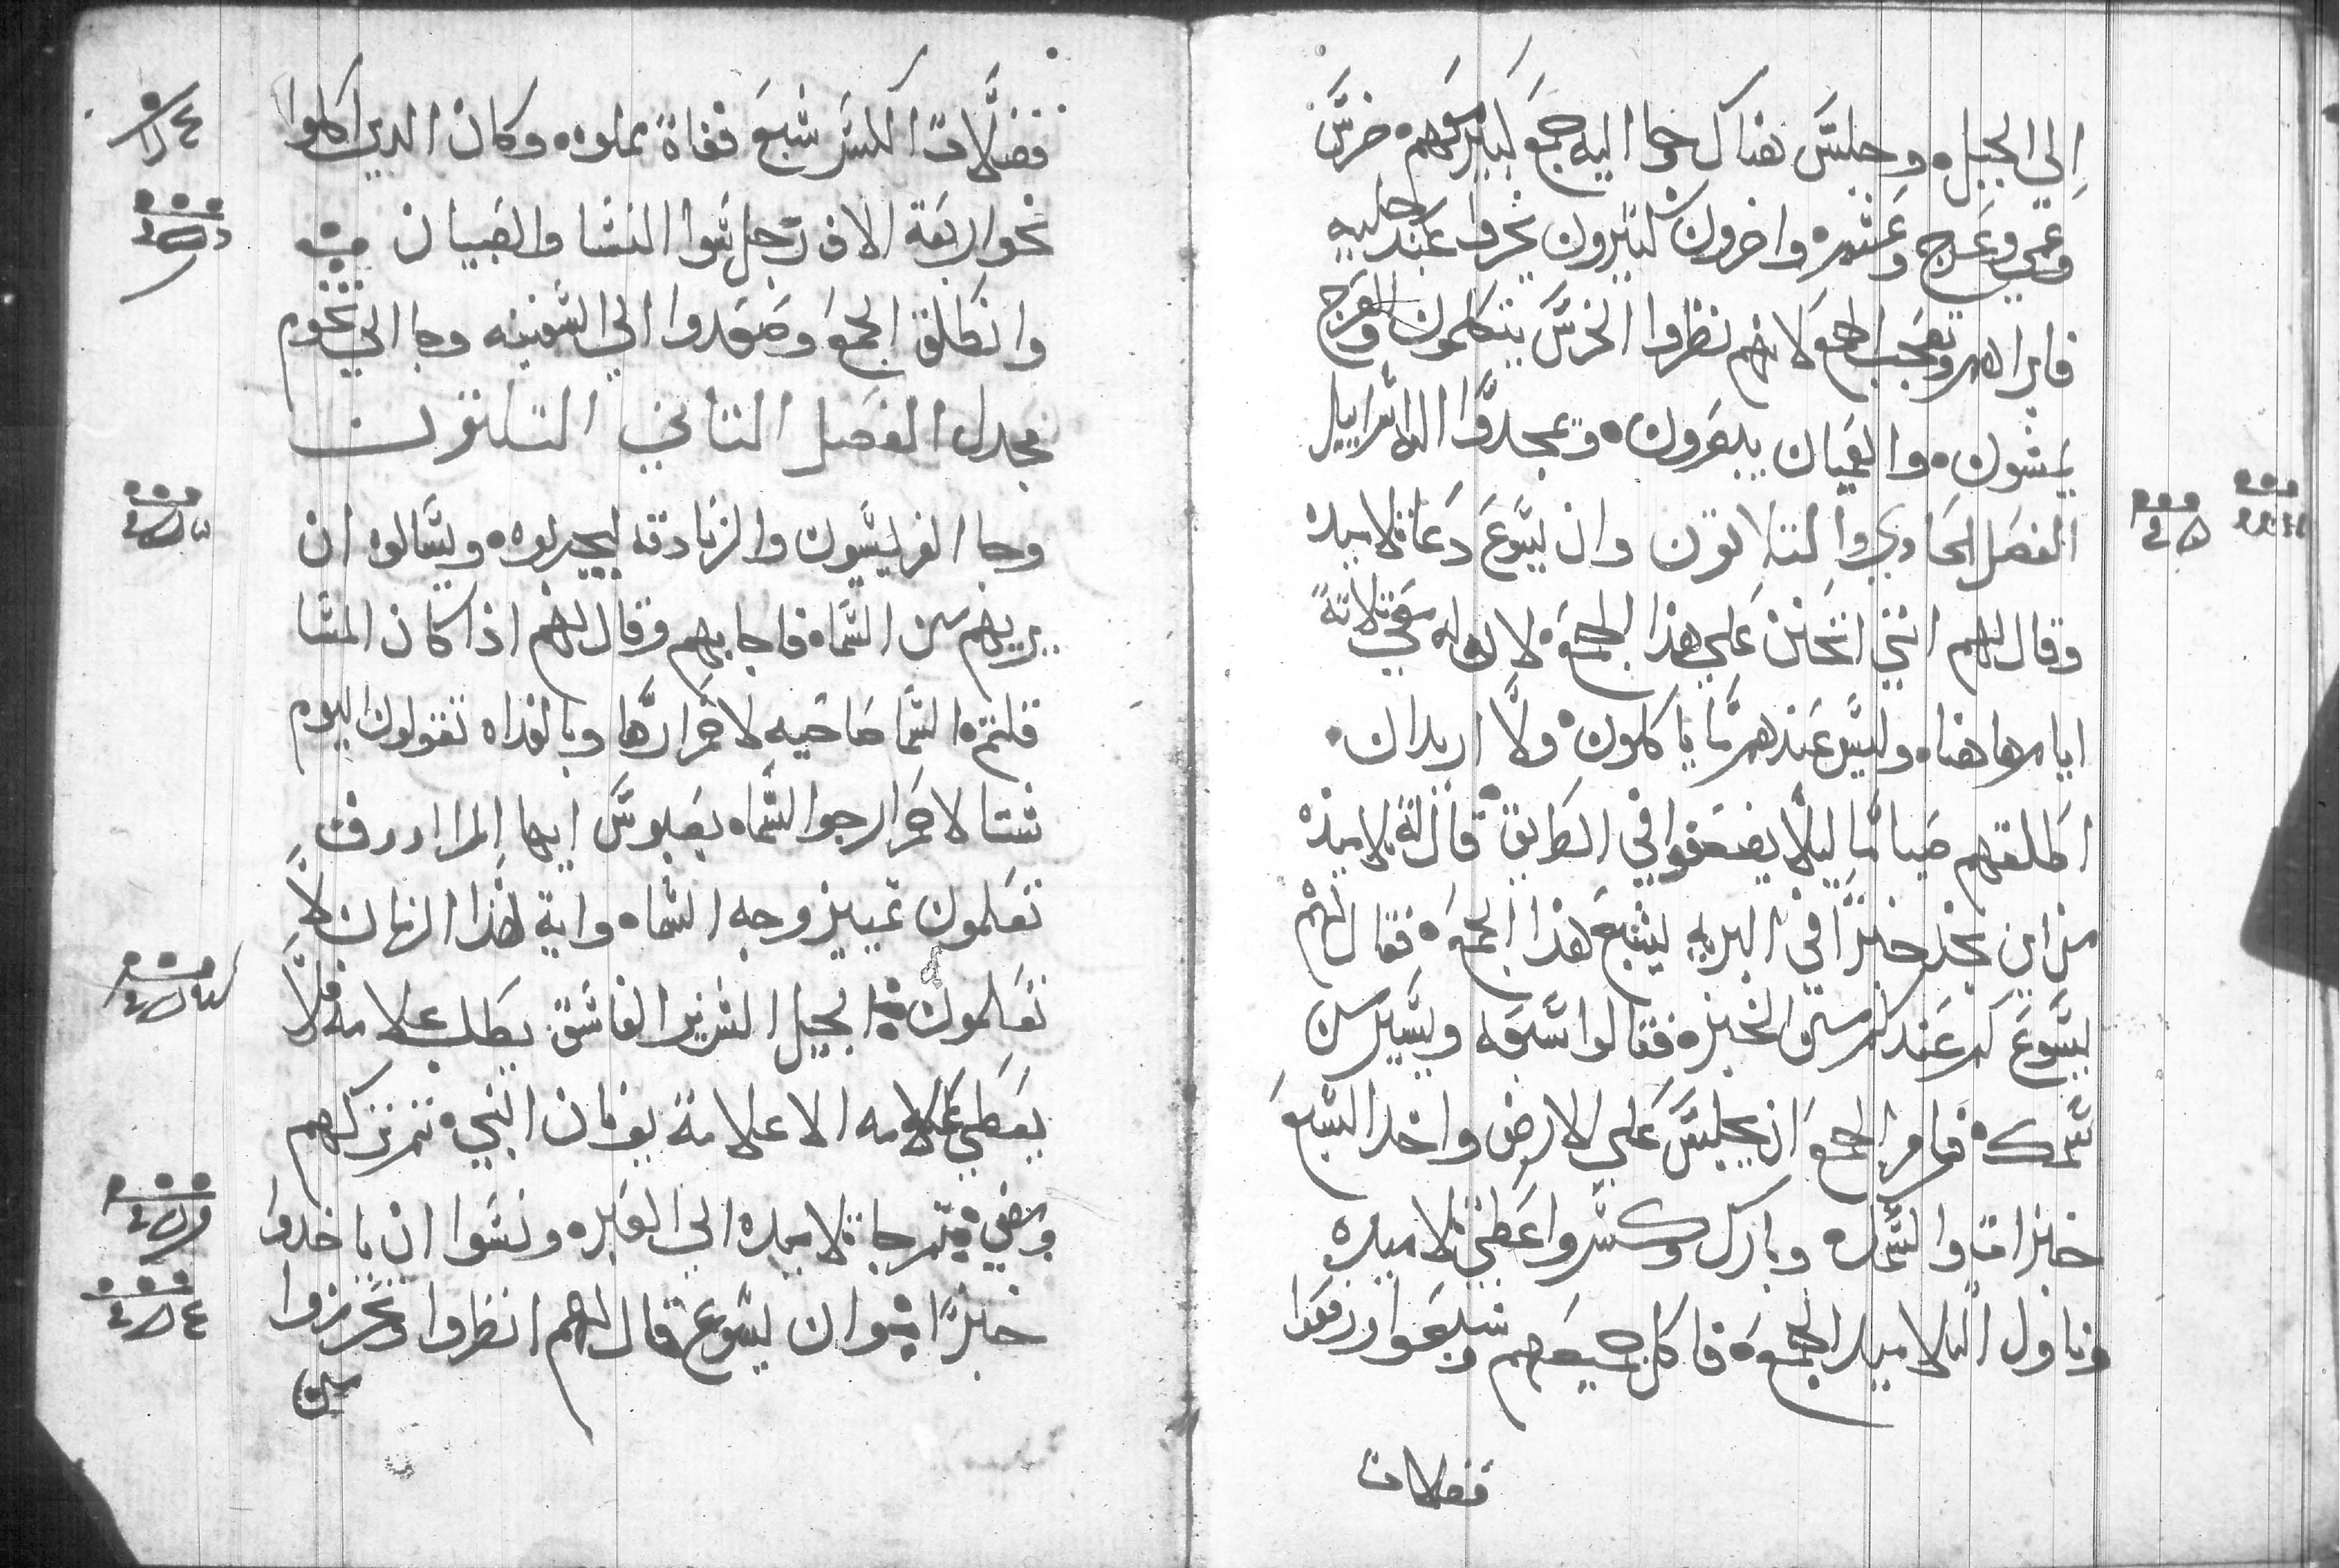 الي الجبل. وجلس هناك جوا اليه جمع كبير معهم خرس
وعمي وعرج وعشم واخرون كثيرون نخروا عند رجليه
فابراهم وتعجب الجمع لانهم نظروا الخرس يتكلمون والعرج
يمشون. والعميان يبصرون. ومجدوا اله اسراييل
الفصل الحادي والتلاتون وان يسوع دعا تلاميده
وقال لهم انني اتحنن علي هذا الجمع. لان له معي تلاتة
ايام هاهنا. وليس عندهم ما ياكلون. ولا اريد ان.
اطلقهم صياما ليلا يضعفوا في الطريق. قال له تلاميذه
من اين نجد خبزا في البريه ليشبع هذا الجمع. فقال لهم
يسوع كم عندكم من الخبز. فقالوا سبعه ويسير من
سمك. فامر الجمع ان يجلس علي الارض واخد السبع
خبزات والسمك. وبارك وكسر واعطي تلاميده
وناول التلاميد الجمع. فاكل جميعهم وشبعوا ورفعوا
فضلات
فضلات الكسر سبع قفاة مملوه. وكان الدين اكلوا
نحو اربعة الاف رجل سوا النسا والصبيان
وانطلق الجمع وصعدوا الي السفينه وجا الي تخوم
مجدل الفصل التاني التلاتون
وجا الفريسيون والزنادقه ليجربوه. ويسالوه ان
يريهم من السماه فاجابهم وقال لهم اذا كان المسا
قلتم السما صاحيه لاحمرارها وبالغداه تقولون اليوم
شتا لاحمرار جوا السماه بعبوس ايها المرا
تعلمون تمييز وجه السماه واية هذا الزمان لا
تعلمون. الجيل الشرير الفاسق يطلب علامه فلا
يعطي علامه الا علامة يونان النبي. تم تركهم
ومضي. تم جا تلاميده الي العبره ونسوا ان ياخدوا
خبزا. وان يسوع قال لهم انظروا وتحرزوا
من